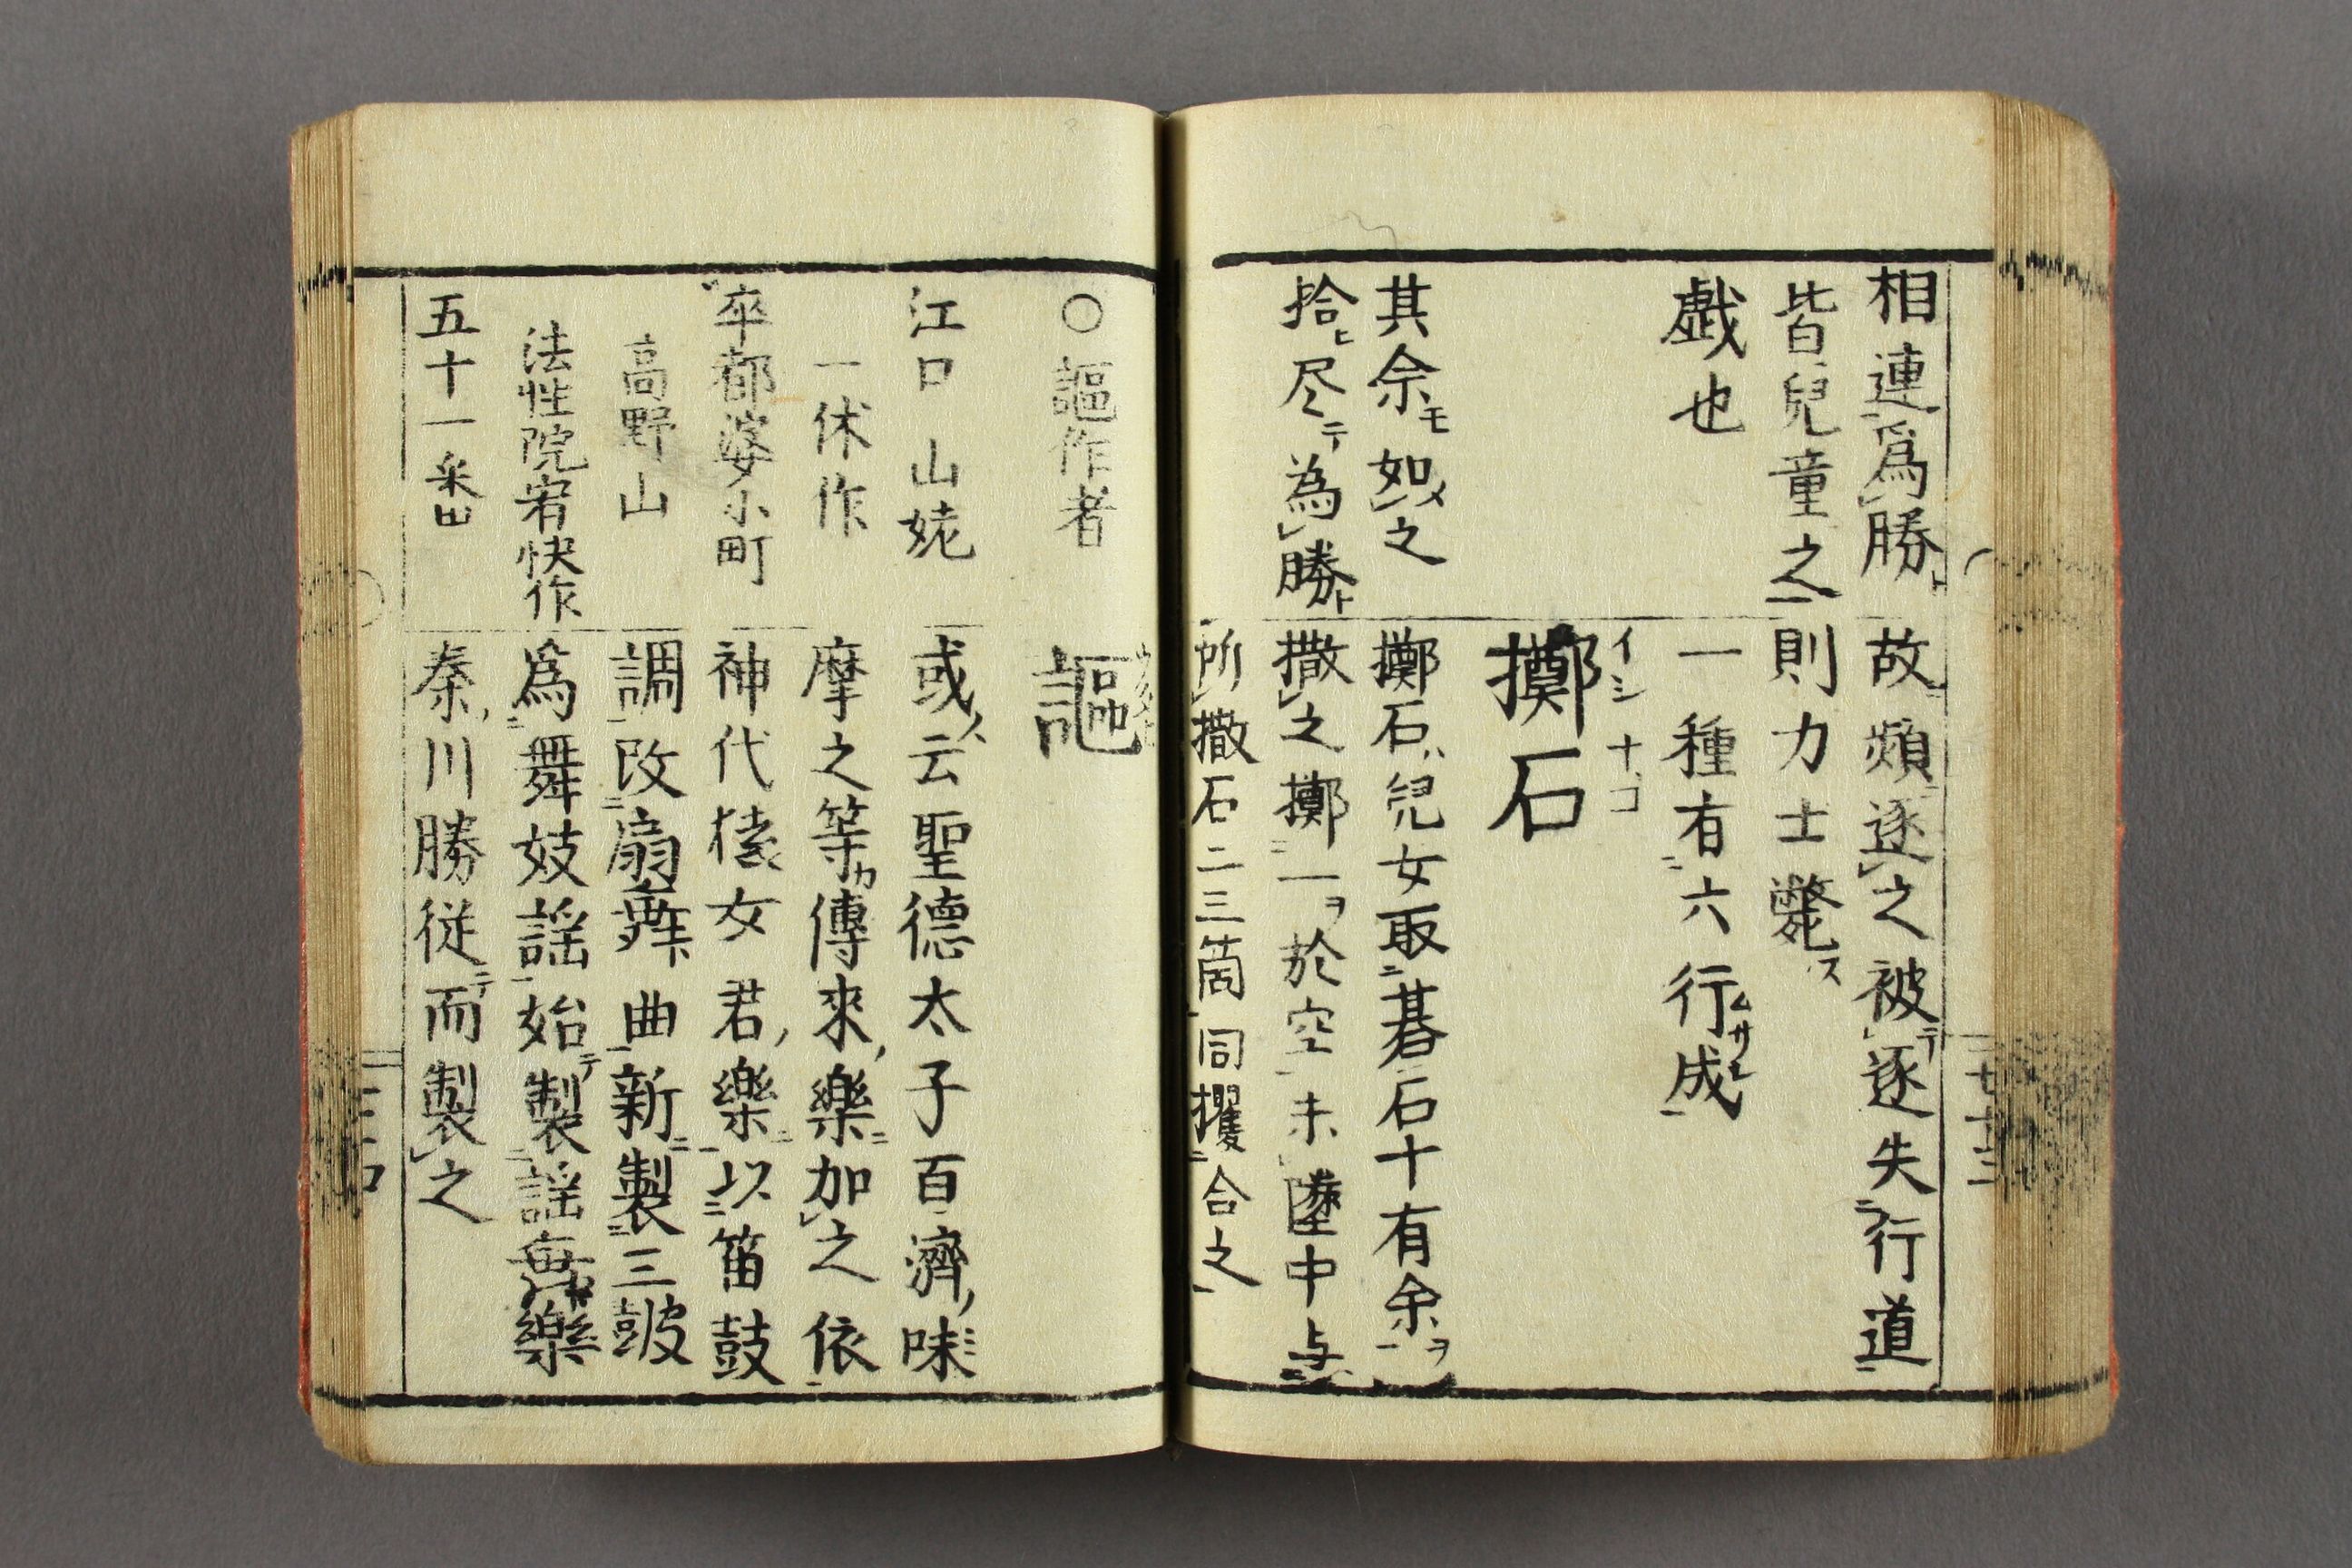 相連為勝
皆兒童之
戯也
其余如之
拾尽為勝
故頻逐之被逐失行道
則力士斃
一種有六行成
イシナゴ
擲石
擲石兒女取碁石十有余
撒之擲一於空未墜中与
所撒石二三箇同攫合之
七十三
○謳作者
江口 山姥
一休作
卒都婆小町
高野山
法性院宥快作
五十一番
謳
或云聖德太子百濟味
摩之等傳來樂加之依
神代猿女君樂以笛鼓
調改扇舞曲新製三皷
爲舞妓謡始製謡舞樂
秦川勝従而製之